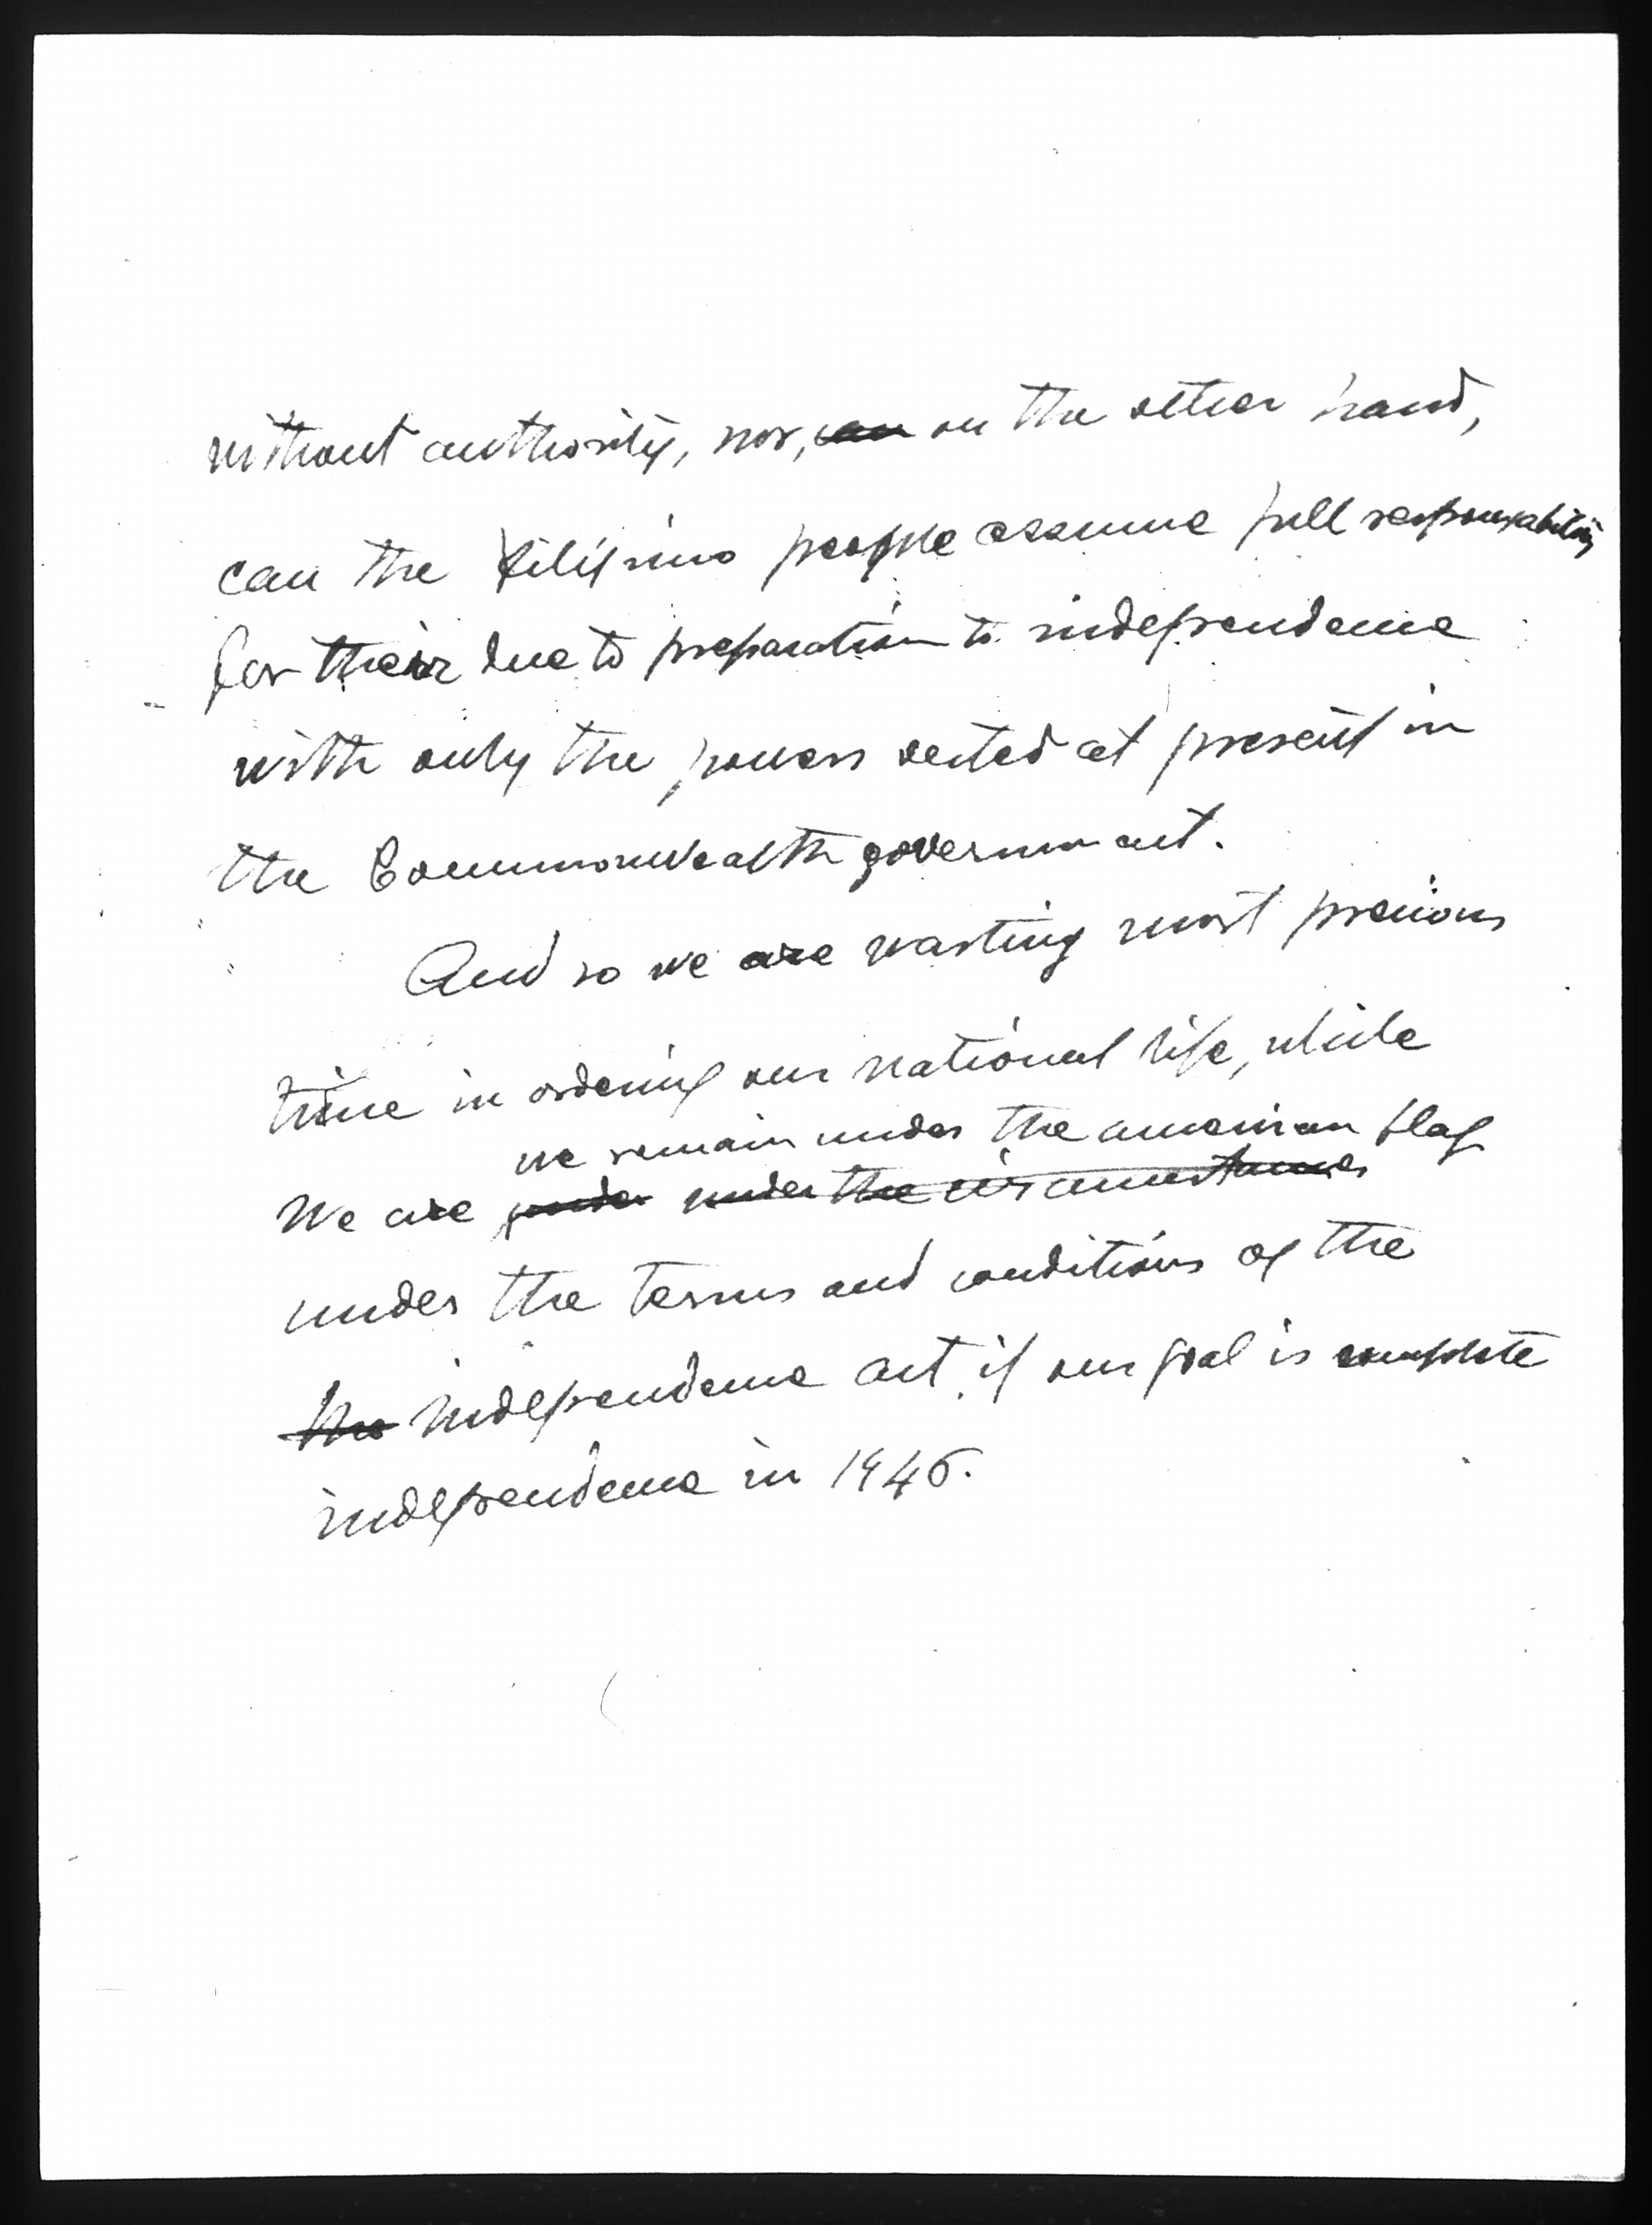 without authority, nor, can on the other hand,
can the Filipino people assume full responsability
for their due to preparation to independence
with only the powers vested at present in
the Commonwealth government.
And so we are wasting most precious
time in ordering our national life, while
we remain under the american flag
We are under under the circumstances
under the terms and conditions of the
the independence act if our goal is complete
independence in 1946.